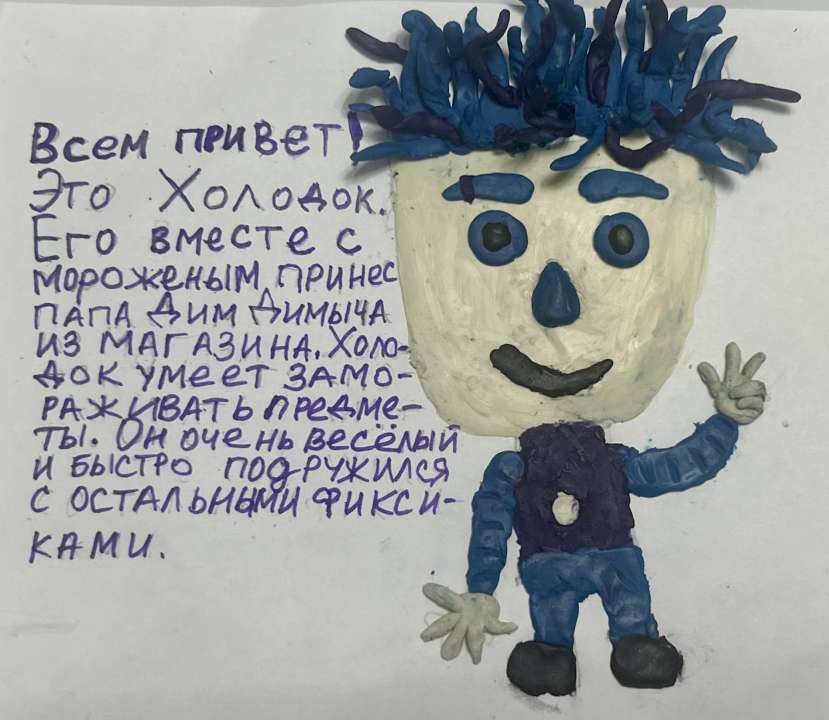 Всем привет!
Это Холодок.
Его вместе с
мороженым принес
папа Дим Димыча
из магазина. Холо-
док умеет замо-
раживать предме-
ты. Он очень весёлый
и быстро подружился
с остальными фикси-
ками.